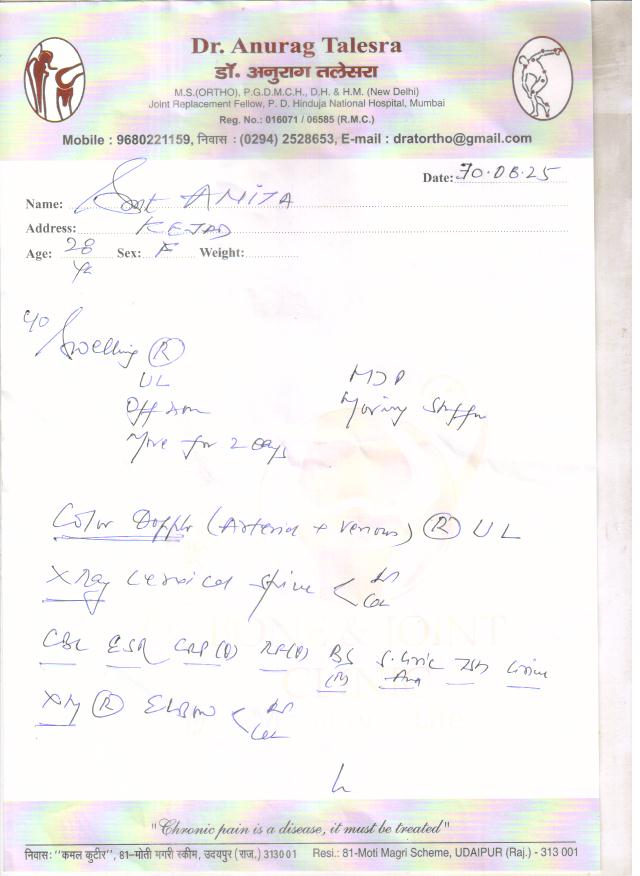 Dr. Anurag Talesra
डॉ. अनुराग तलेसरा
M.S.(ORTHO), P.G.D.M.C.H., D.H. & H.M. (New Delhi)
Joint Replacement Fellow, P. D. Hinduja National Hospital, Mumbai
Reg. No.: 016071 / 06585 (R.M.C.)
Mobile : 9680221159, निवास : (0294) 2528653, E-mail : dratortho@gmail.com
Date: 30.08.25
Name: Smt AMITA
Address: KEJAD
Age: 28 Yr Sex: F Weight:
c/o Swelling (R)
UL
Off & on
More for 2 days
MJP
Morning Stiffn
Color Doppler (Arterial + venous) (R) UL
XRay cervical spine < AP
Lat
CBC ESR CRP(Q) RF(Q) BS (R) S. Uric Acid TSH Urine
XRy (R) Elbow < AP
Lat
BONE & JOINT
CLINIC
"Chronic pain is a disease, it must be treated"
निवास: "कमल कुटीर", 81-मोती मगरी स्कीम, उदयपुर (राज.) 313001 Resi.: 81-Moti Magri Scheme, UDAIPUR (Raj.) - 313 001